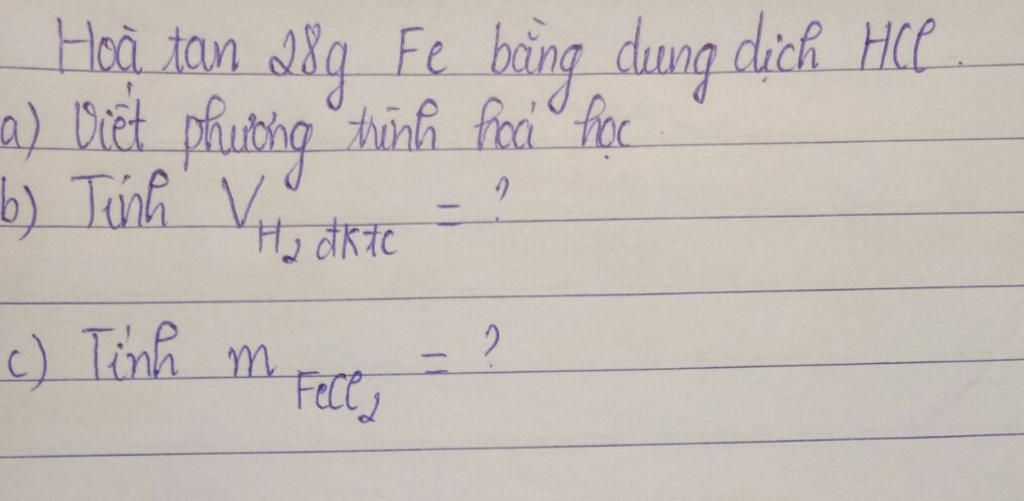 Hoà tan 28g Fe bằng dung dịch HCl.
a) Viết phương trình hoá học
b) Tính V H₂ đktc = ?
c) Tính m FeCl₂ = ?